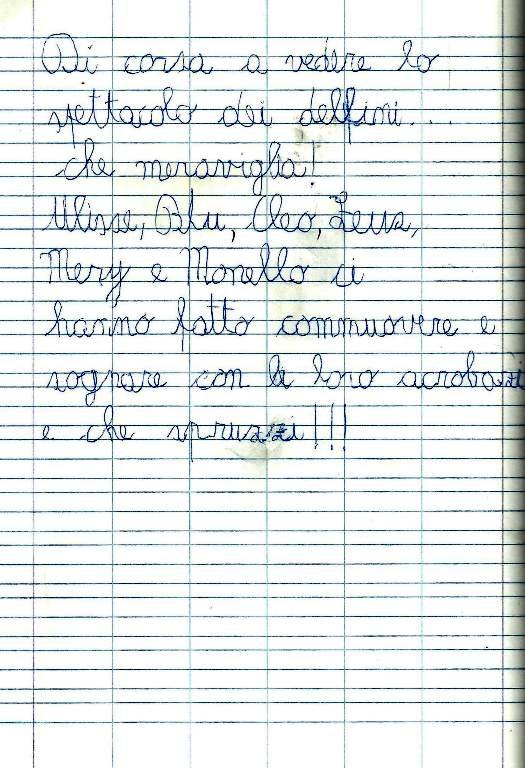 Di corsa a vedere lo
spettacolo dei delfini....
che meraviglia!
Ulisse, Blu, Cleo, Zeus,
Mery e Monello ci
hanno fatto commuovere e
sognare con le loro acrobazie
e che spruzzi!!!